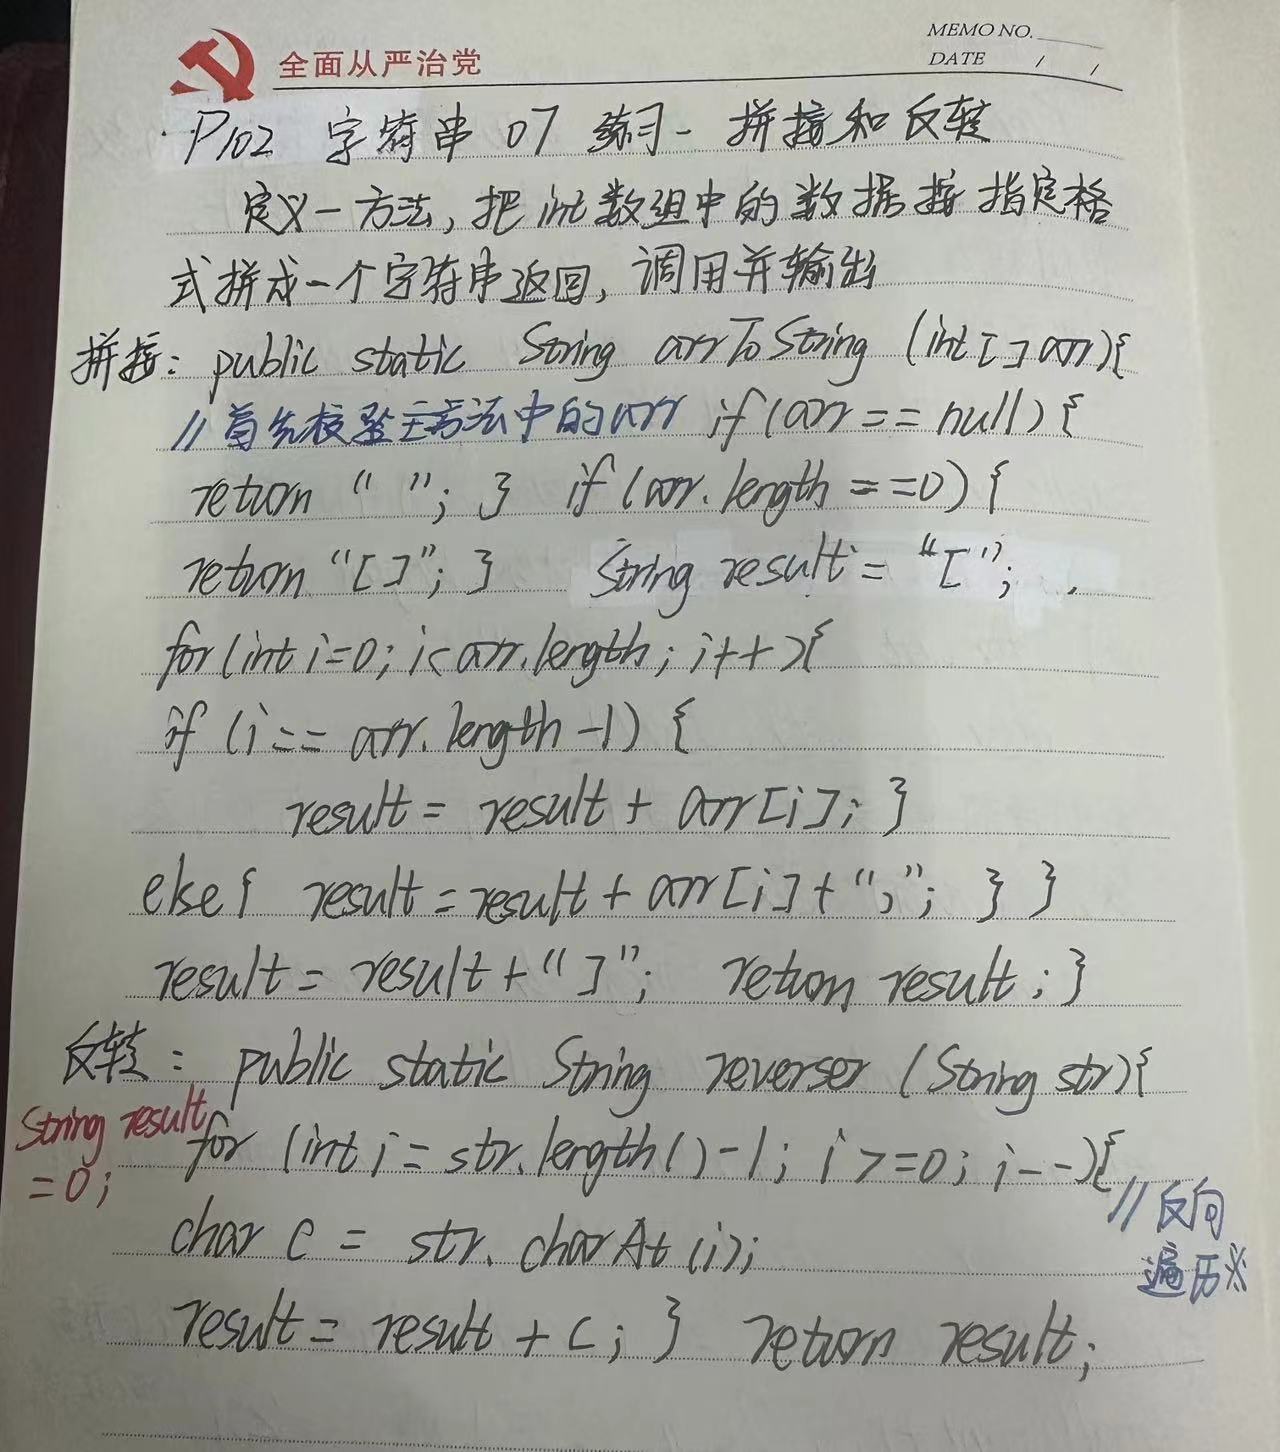 MEMO NO.
全面从严治党
DATE / /
P102 字符串 07 练习-拼接和反转
定义一方法,把int数组中的数据按指定格
式拼成一个字符串返回,调用并输出
拼接: public static String arrToString (int[] arr){
//首先核验主方法中的arr if(arr == null) {
return “ ”; } if(arr.length ==0) {
return “[]”; } String result = “[”;
for(int i=0; i<arr.length; i++){
if (i == arr.length -1) {
result = result + arr[i]; }
else{ result = result + arr[i] + “,”; } }
result = result + “]”; return result; }
反转: public static String reverser (String str){
String result
=0;
for (int i = str.length()-1; i >=0; i--){
//反向
遍历※
char c = str.charAt(i);
result = result + c; } return result;